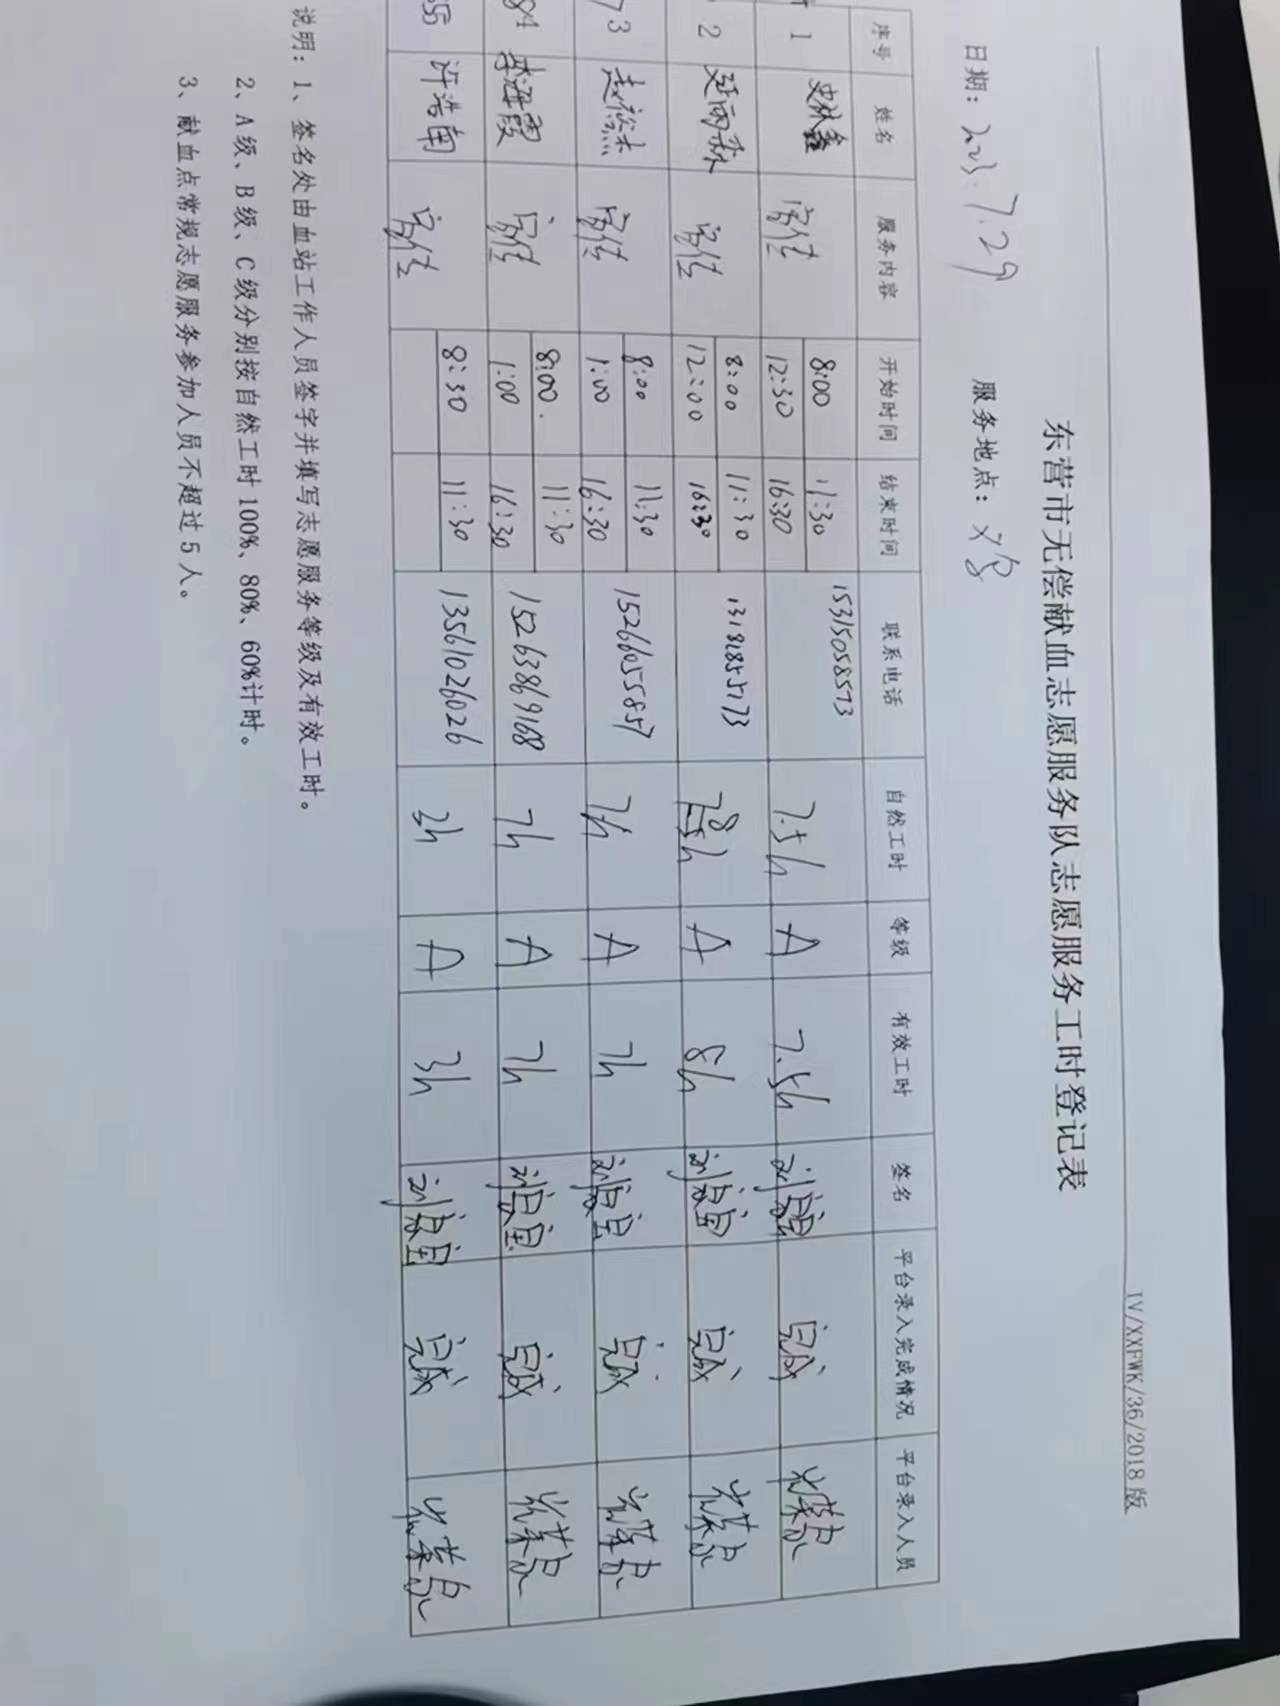 IV/XXFWK/36/2018版
东营市无偿献血志愿服务队志愿服务工时登记表
日期：2023.7.29 服务地点：
序号 姓名 服务内容 开始时间 结束时间 联系电话 自然工时 等级 有效工时 签名 平台录入完成情况 平台录入人员
1 史林鑫 宣传 8:00 11:30 15315058573 7.5h A 7.5h 完成
12:30 16:30
2 延雨森 宣传 8:00 11:30 13181855773 8h A 8h 完成
12:00 16:30
3 宣传 8:00 11:30 15266055857 7h A 7h 完成
1:00 16:30
4 李海霞 宣传 8:00. 11:30 15263869168 7h A 7h 完成
1:00 16:30
5 许浩南 宣传 8:30 11:30 13561026026 3h A 3h 完成
说明：1、签名处由血站工作人员签字并填写志愿服务等级及有效工时。
2、A级、B级、C级分别按自然工时100%、80%、60%计时。
3、献血点常规志愿服务参加人员不超过5人。